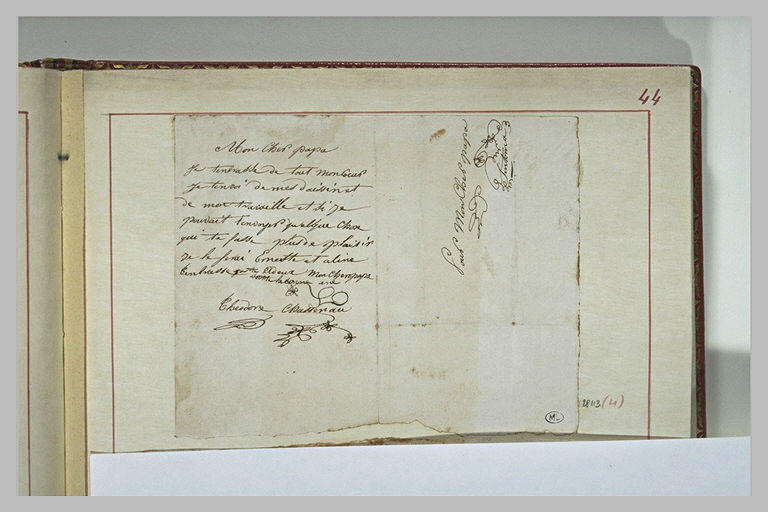 44
Mon Cher papa
Je tenbrasse de tout mon Coeur
Je tenvoi de mes daissin et
de mon travaille et si je
pouvait tenvoyer quelque Chose
qui te fasse plus de plaisir
Je le ferai Erneste et aline
tenbrasse Mon Cher papa
Theodore Chasseriau
Pour Mon Cher papa
2843 (4)
ML